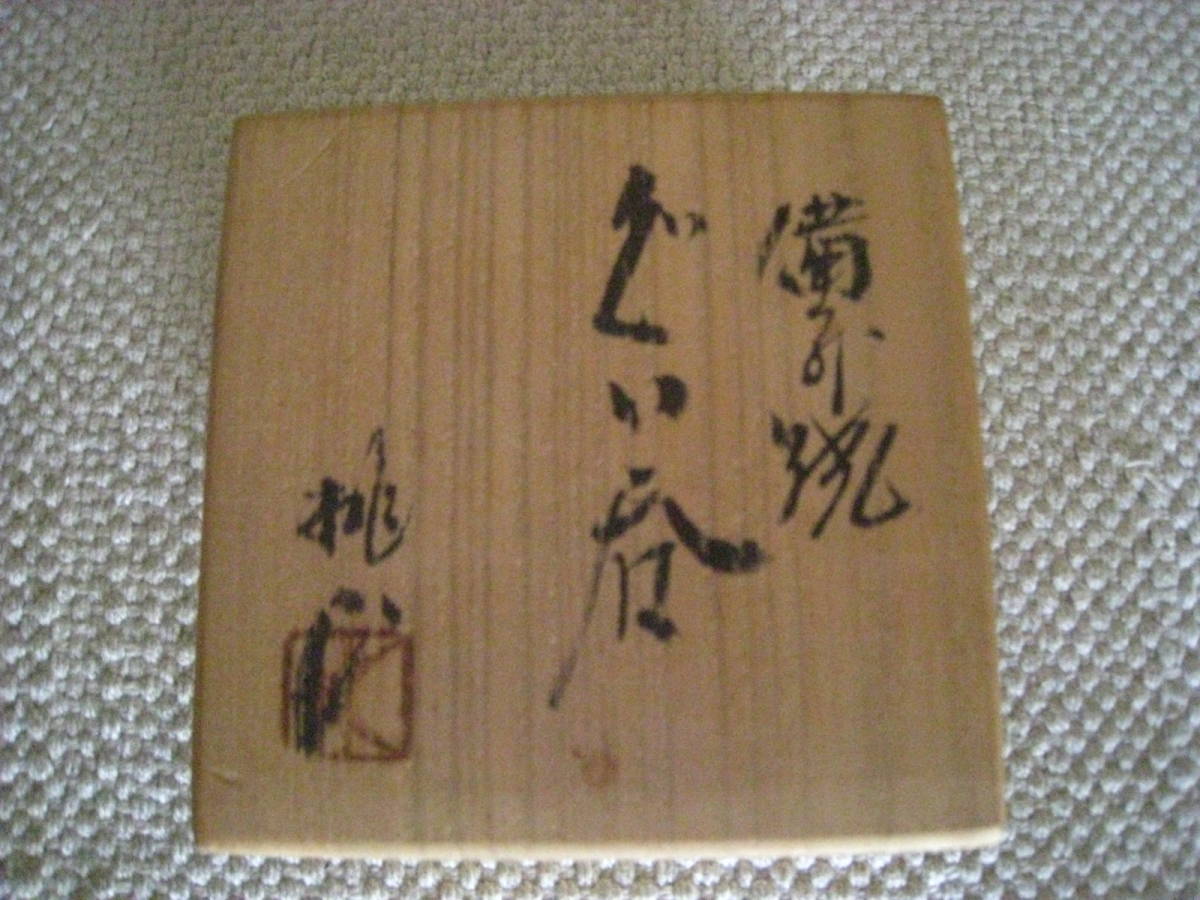 備前焼
ぐい呑
桃